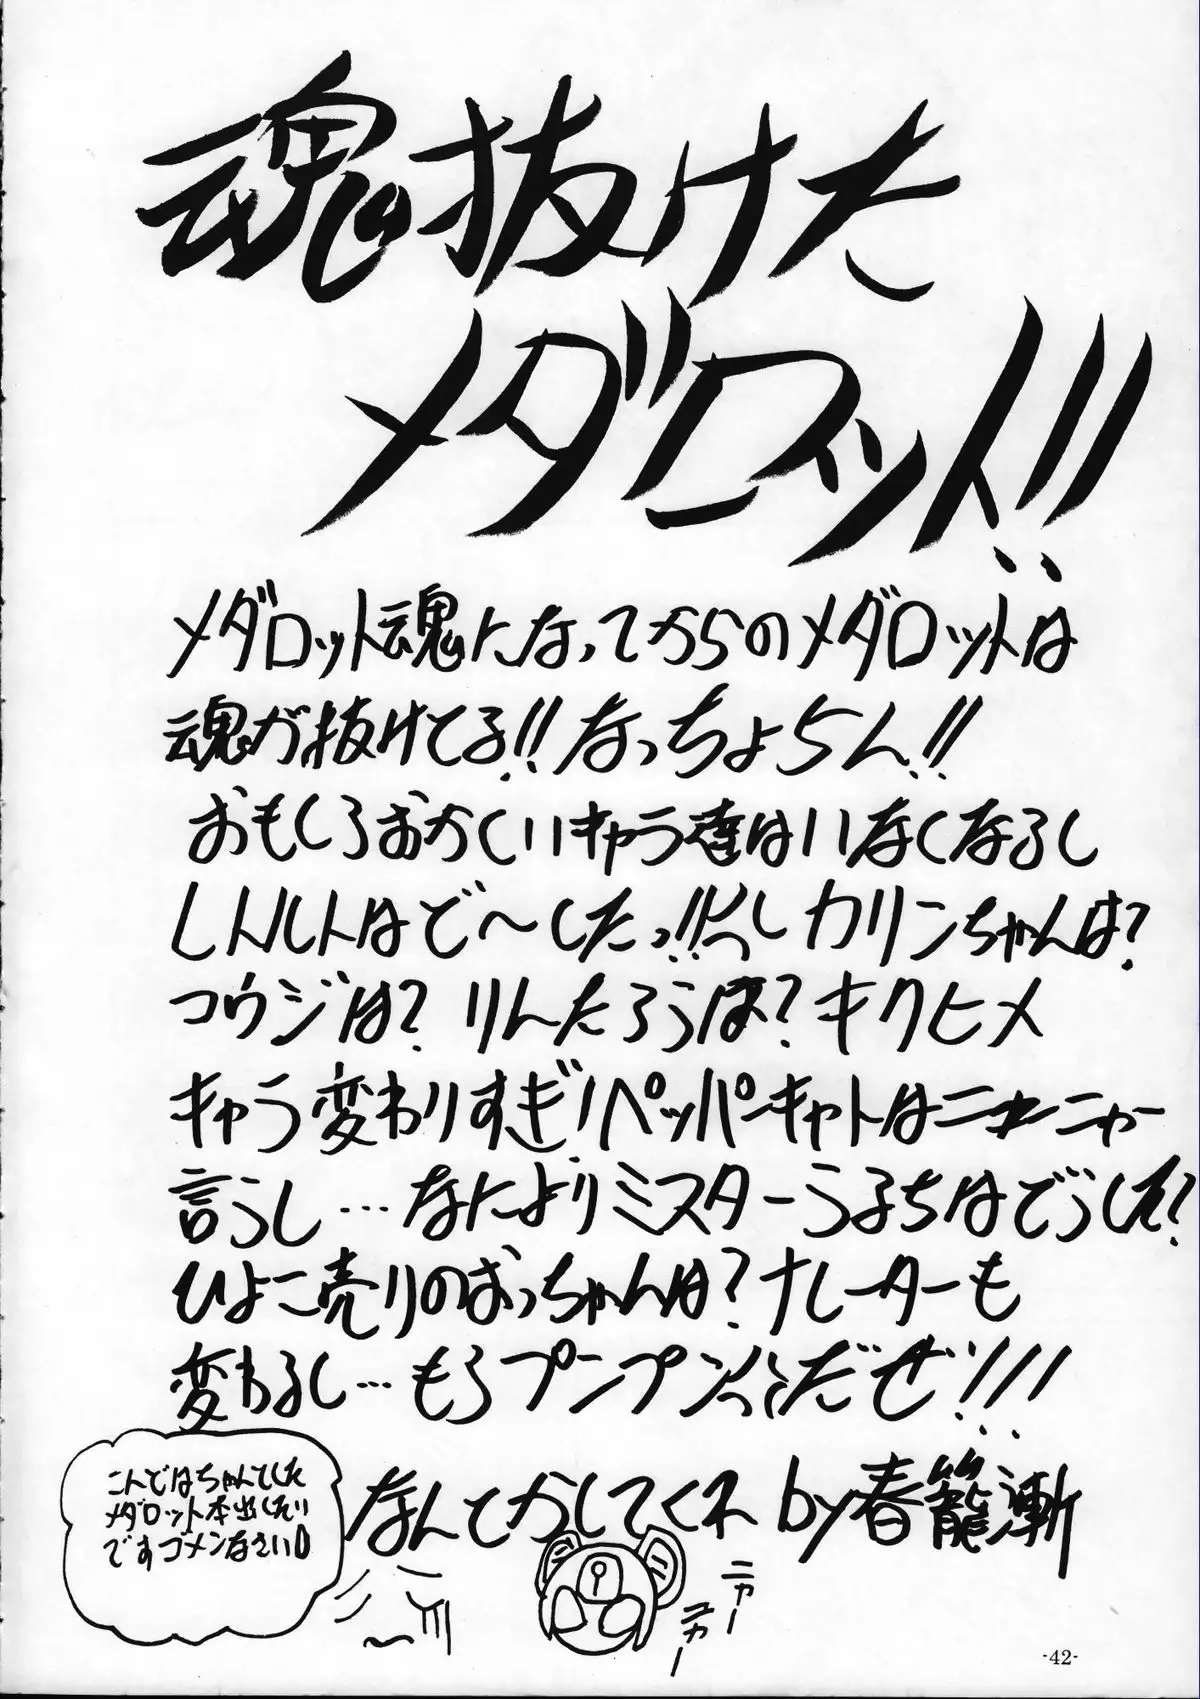 魂抜けた
メダロット!!
メダロット魂になってからのメダロットは
魂が抜けてる!!なっちょらん!!
おもしろおかしいキャラ達はいなくなるし
レトルトはど〜したっ!!しカリンちゃんは?
コウジは?りんたろうは?キクヒメ
キャラ変わりすぎ!ペッパーキャトはニャーニャー
言うし…なによりミスターうるちはどうした?
ひよこ売りのおっちゃんは?ナレーターも
変わるし…もうプンプンだぜ!!!
なんとかしてくれ by春籠漸
こんどはちゃんとした
メダロット本出したい
ですゴメンなさい
ニャー
ニャー
-42-